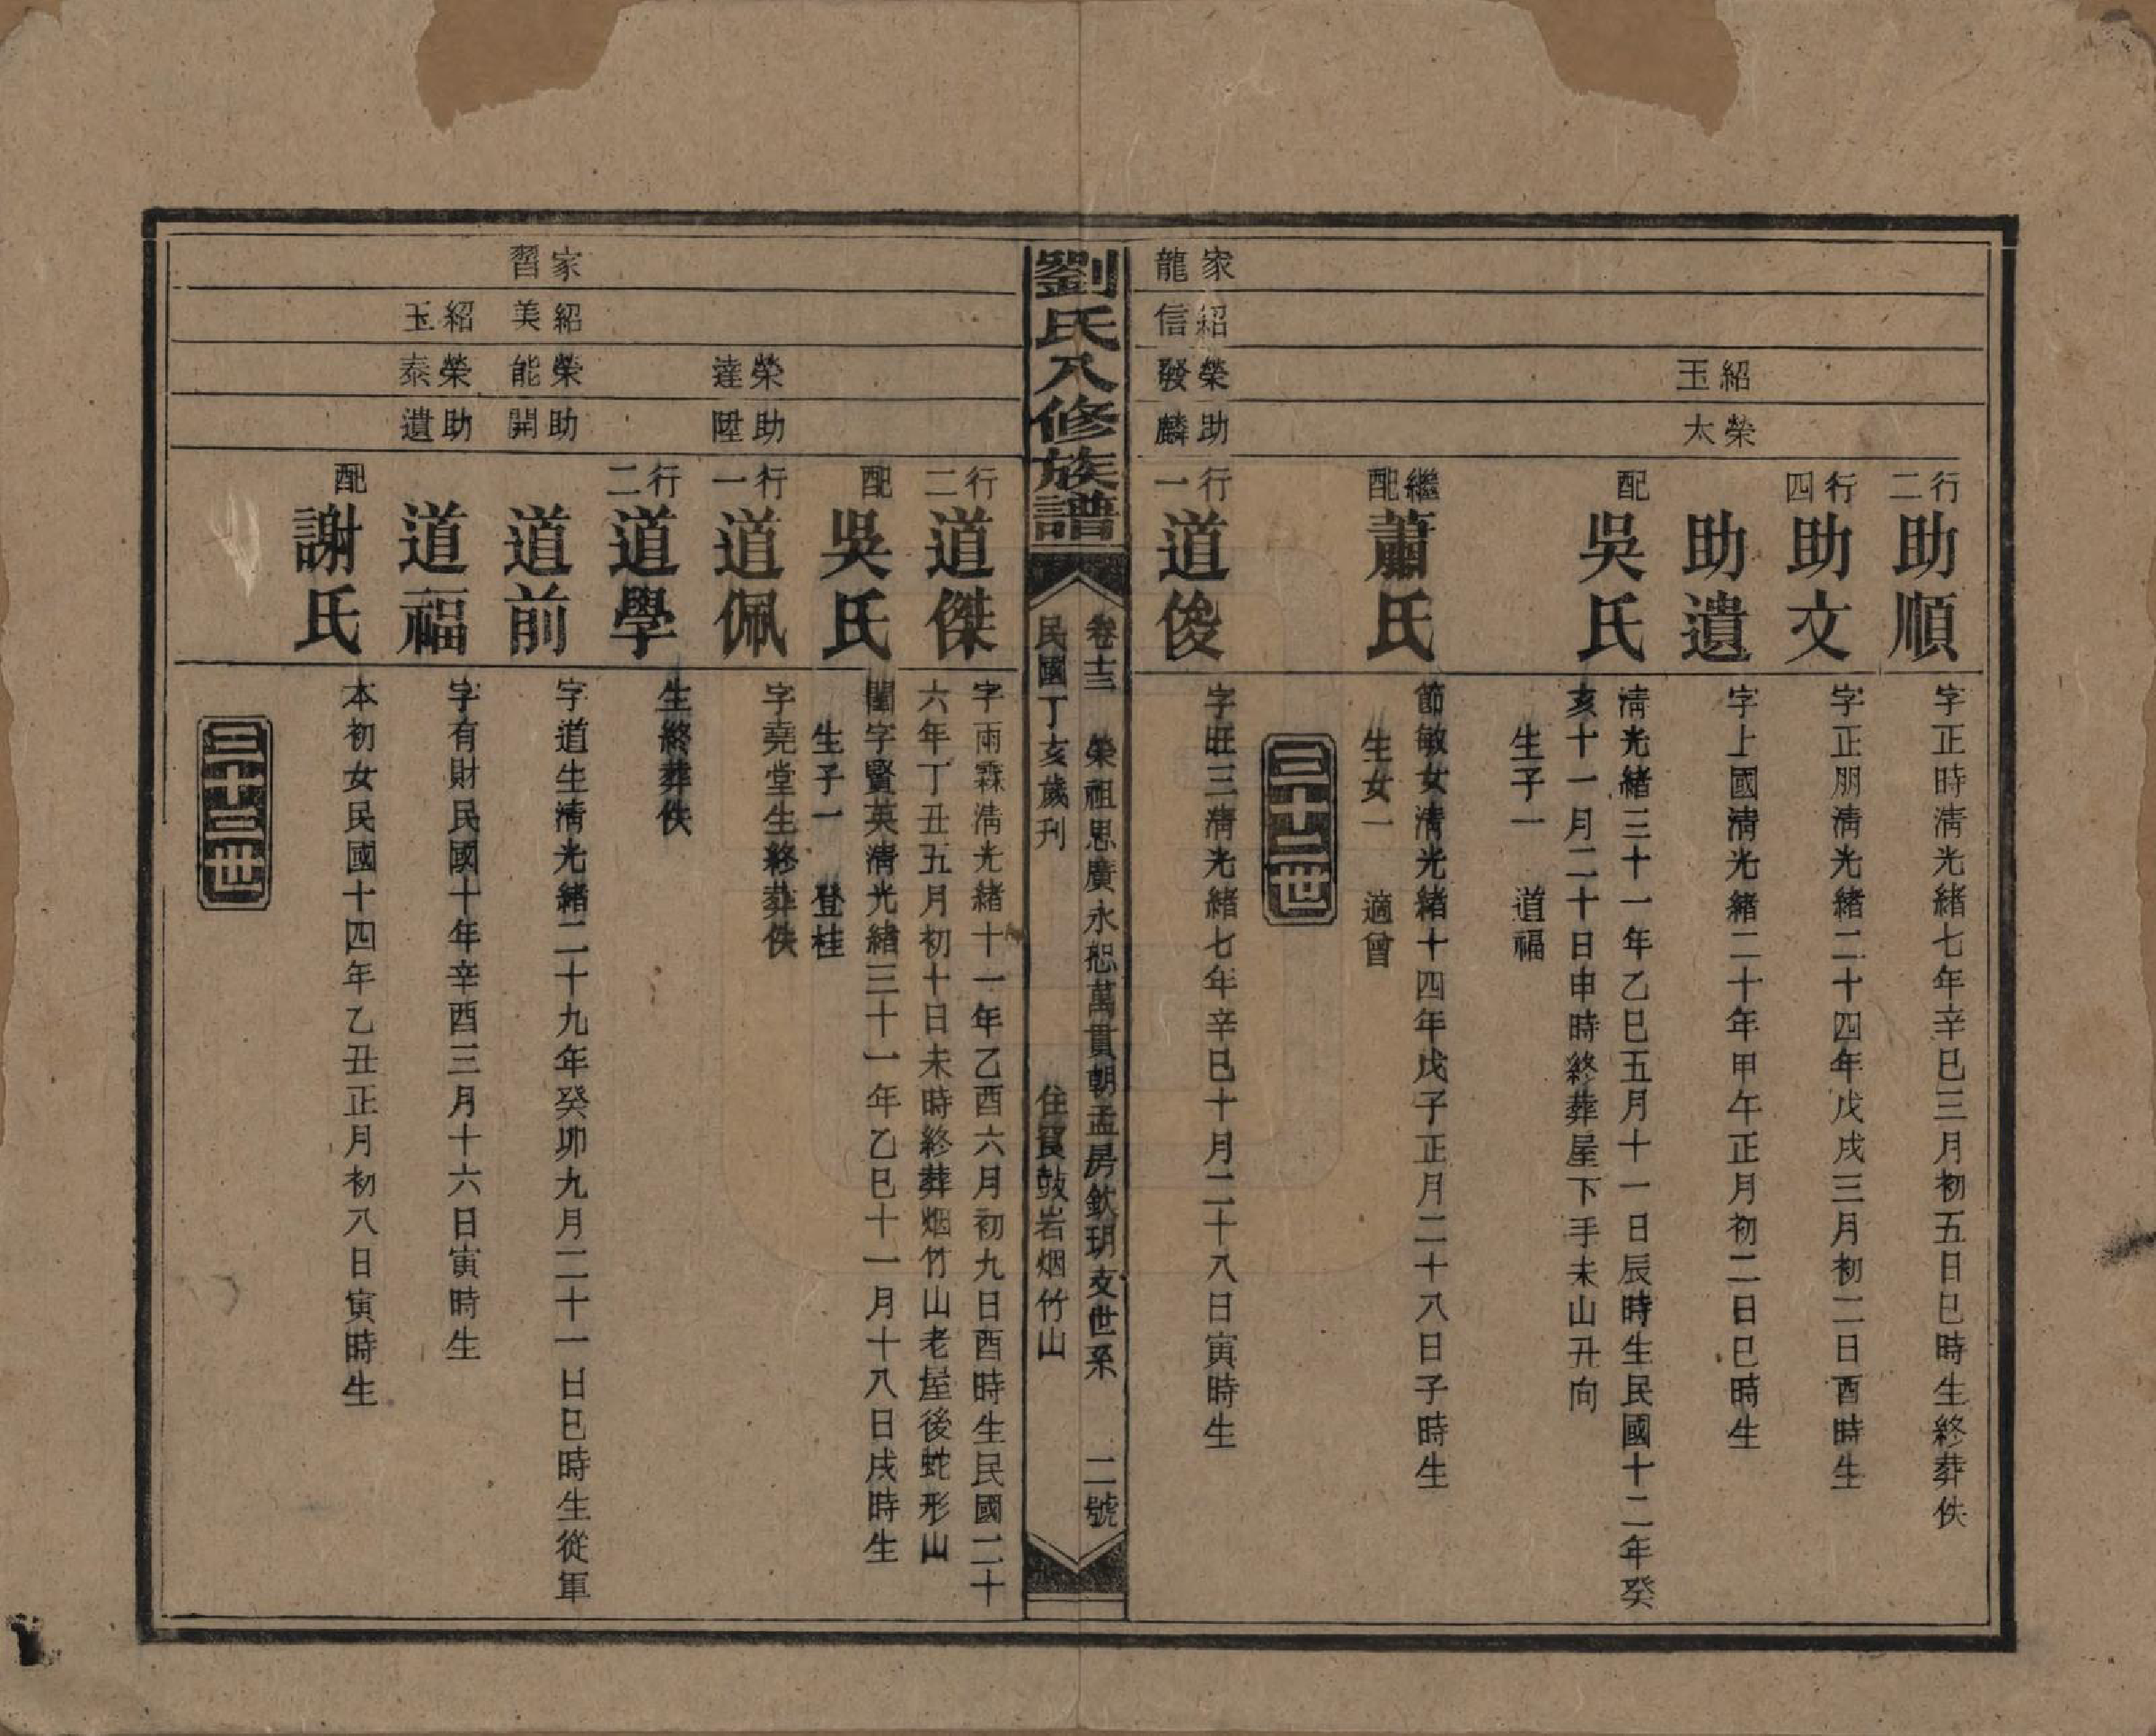 行二
助順
字正時淸光緒七年辛巳三月初五日巳時生終葬佚
行四
助文
字正朋淸光緒二十四年戊戌三月初二日酉時生
紹玉
榮太
助遺
字上國淸光緒二十年甲午正月初二日巳時生
配
吳氏
淸光緒三十一年乙巳五月十一日辰時生民國十二年癸
亥十一月二十日申時終葬屋下手未山丑向
生子一 道福
繼配
蕭氏
節敏女淸光緒十四年戊子正月二十八日子時生
生女一 適曾
三十二世
家龍
紹信
榮發
助麟
行一
道俊
字旺三淸光緒七年辛巳十月二十八日寅時生
劉氏八修族譜
卷十三 榮祖思廣永恕萬貫朝孟房欽玥支世系 二號
民國丁亥歲刊 住 鼓岩烟竹山
行二
道傑
字雨霖淸光緒十一年乙酉六月初九日酉時生民國二十
六年丁丑五月初十日未時終葬烟竹山老屋後蛇形山
配
吳氏
閨字賢英淸光緒三十一年乙巳十一月十八日戌時生
生子一 登桂
榮達
助陞
行一
道佩
字堯堂生終葬佚
行二
道學
生終葬佚
家習
紹美
榮能
助開
道前
字道生淸光緒二十九年癸卯九月二十一日巳時生從軍
紹玉
榮泰
助遺
道福
字有財民國十年辛酉三月十六日寅時生
配
謝氏
本初女民國十四年乙丑正月初八日寅時生
三十三世